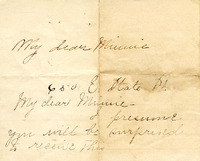 My dear Minnie
650 E. State St.
My dear Minnie -
I presume
you will be surprised
to receive this